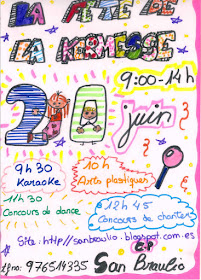 LA FÊTE DE
LA KERMESSE
9:00-14h
20 juin
9h30
Karaoke
10h
Arts plastiques
11h30
Concours de dance
12h45
Concours de chanter
Site: http//sanbraulio.blogspot.com.es
C.P
San Braulio
tfno: 976514335